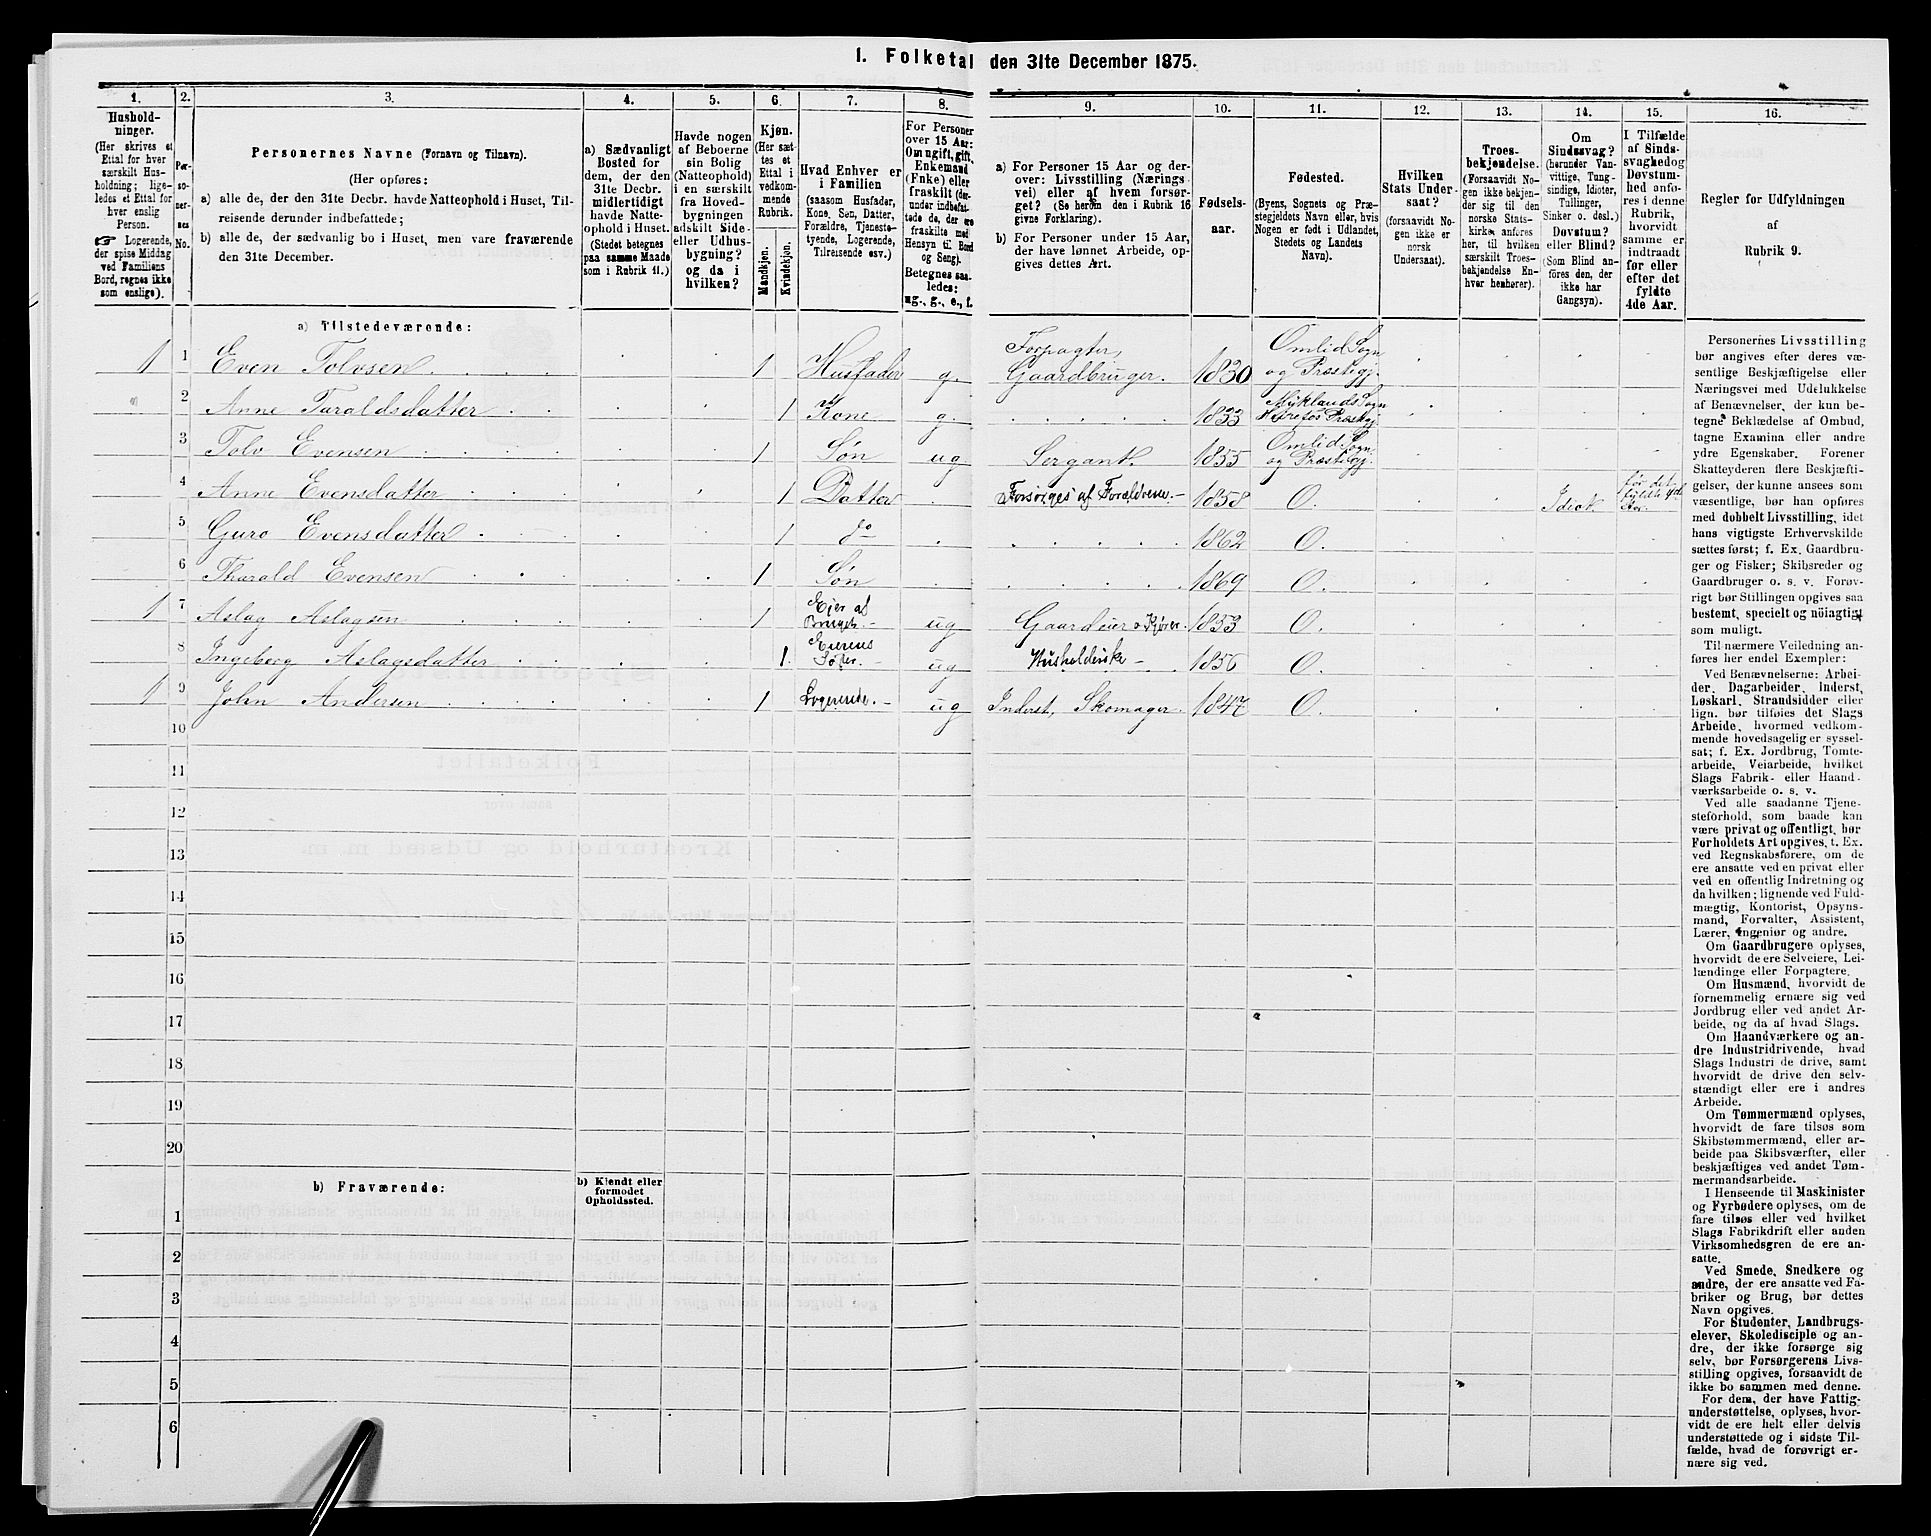 1. Folketal den 31te December 1875.
1.
2.
3.
4.
5.
6.
7.
8.
9.
10.
11.
12.
13.
14.
15.
16.
Hushold-
ninger.
(Her skrives et
Ettal for hver
særskilt Hus-
holdning; lige-
ledes et Ettal for
hver enslig
Person.
☞ Logerende,
der spise Middag
ved Familiens
Bord, regnes ikke
som enslige).
Per-
so-
ner-
nes
No.
Personernes Navne (Fornavn og Tilnavn).
(Her opføres:
a) alle de, der den 31te Decbr. havde Natteophold i Huset, Til-
reisende derunder indbefattede;
b) alle de, der sædvanlig bo i Huset, men vare fraværende
den 31te December.
a) Sædvanligt
Bosted for
dem, der den
31te Decbr.
midlertidigt
havde Natte-
ophold i Huset.
(Stedet betegnes
paa samme Maade
som i Rubrik 11.)
Havde nogen
af Beboerne
sin Bolig
(Natteophold)
i en særskilt
fra Hoved-
bygningen
adskilt Side-
eller Udhus-
bygning?
og da i
hvilken?
Kjøn.
(Her sæt-
tes et
Ettal i
vedkom-
mende
Rubrik.
Mandkjøn.
Kvindekjøn.
Hvad Enhver er
i Familien
(saasom Husfader,
Kone, Søn, Datter,
Forældre, Tjeneste-
tyende, Logerende,
Tilreisende osv.)
For Personer
over 15 Aar:
Om ugift, gift,
Enkemand
(Enke) eller
fraskilt (der-
under indbefat-
tede de, der ere
fraskilte med
Hensyn til Bord
og Seng).
Betegnes saa-
ledes:
ug., g., e., f.
a) For Personer 15 Aar og der-
over: Livsstilling (Nærings
vei) eller af hvem forsør-
get? (Se herom den i Rubrik 16
givne Forklaring).
b) For Personer under 15 Aar,
der have lønnet Arbeide, op-
gives dettes Art.
Fødsels-
aar.
Fødested.
(Byens, Sognets og Præ-
stegjeldets Navn eller, hvis
Nogen er født i Udlandet,
Stedets og Landets
Navn).
Hvilken
Stats Under-
saat?
(forsaavidt No-
gen ikke er
norsk
Undersaat).
Troes-
bekjendelse.
(Forsaavidt No-
gen ikke bekjen-
der sig til den
norske Stats-
kirke, anføres
her, til hvilken
særskilt Troes-
bekjendelse En-
hver henhører).
Om
Sindssvag?
(herunder Van-
vittige, Tung-
sindige, Idioter,
Tullinger,
Sinker o. desl.)
Døvstum?
eller Blind?
(Som Blind an-
føres den, der
ikke har
Gangsyn).
I Tilfælde
af Sinds-
svaghed og
Døvstum-
hed anfø-
res i denne
Rubrik,
hvorvidt
samme er
indtraadt
før eller
efter det
fyldte
4de Aar.
Regler for Udfyldningen
af
Rubrik 9.
a) Tilstedeværende:
1 1 Even Tolvsen 1 Husfader g. Forpagter, Gaardbruger. 1830 Omlid Sogn og Præstegj.
2 Anne Taraldsdatter 1 Kone g. 1833 Myklands Sogn Herefos Præstegj
3 Tolv Evensen 1 Søn ug Sergant. 1855 Omlid Sogn og Præstegj.
4 Anne Evensdatter 1 Datter Forsørges af Forældrene. 1858 O. Idiot før det fyldte 4de Aar.
5 Guro Evensdatter 1 do 1862 O.
6 Tharald Evensen 1 Søn 1869 O.
1 7 Aslag Aslagsen 1 Ejer af Bruget. ug Gaardeier 1853 O.
8 Ingeborg Aslagsdatter 1 Eierens Søster. ug Husholderske 1856 O.
1 9 John Andersen 1 Logerende. ug Inderst, Skomager. 1847 O.
10
11
12
13
14
15
16
17
18
19
20
b) Fraværende:
b) Kjendt eller
formodet
Opholdssted.
1
2
3
4
5
6
Personernes Livsstilling
bør angives efter deres væ-
sentlige Beskjæftigelse eller
Næringsvei med Udelukkelse
af Benævnelser, der kun be-
tegne Beklædelse af Ombud,
tagne Examina eller andre
ydre Egenskaber. Forener
Skatteyderen flere Beskjæfti-
gelser, der kunne ansees som
væsentlige, bør han opføres
med dobbelt Livsstilling, idet
hans vigtigste Erhvervskilde
sættes først; f. Ex. Gaardbru-
ger og Fisker; Skibsreder og
Gaardbruger o. s. v. Forøv-
rigt bør Stillingen opgives saa
bestemt, specielt og nöiagtigt
som muligt.
Til nærmere Veiledning an-
føres her endel Exempler:
Ved Benævnelserne: Arbei-
der, Dagarbeider, Inderst,
Løskarl, Strandsidder eller
lign. bør tilføies det Slags
Arbeide, hvormed vedkom-
mende hovedsagelig er syssel-
sat; f. Ex. Jordbrug, Tomte-
arbeide, Veiarbeide, hvilket
Slags Fabrik- eller Haand-
værksarbeide o. s. v.
Ved alle saadanne Tjene-
steforhold, som baade kan
være privat og offentligt, bør
Forholdets Art opgives, t. Ex.
ved Regnskabsførere, om de
ere ansatte ved en privat eller
ved en offentlig Indretning og
da hvilken; lignende ved Fuld-
mægtig, Kontorist, Opsyns-
mand, Forvalter, Assistent,
Lærer, Ingeniør og andre.
Om Gaardbrugere oplyses,
hvorvidt de ere Selveiere, Lei-
lændinge eller Forpagtere.
Om Husmænd, hvorvidt de
fornemmelig ernære sig ved
Jordbrug eller ved andet Ar-
beide, og da af hvad Slags.
Om Haandværkere og an-
dre Industridrivende, hvad
Slags Industri de drive, samt
hvorvidt de drive den selv-
stændigt eller ere i andres
Arbeide.
Om Tømmermænd oplyses,
hvorvidt de fare tilsøs som
Skibstømmermænd, eller ar-
beide paa Skibsværfter, eller
beskjæftiges ved andet Tøm-
mermandsarbeide.
I Henseende til Maskinister
og Fyrbødere oplyses, om de
fare tilsøs eller ved hvilket
Slags Fabrikdrift eller anden
Virksomhedsgren de ere an-
satte.
Ved Smede, Snedkere og
andre, der ere ansatte ved Fa-
briker og Brug, bør dettes
Navn opgives.
For Studenter, Landbrugs-
elever, Skoledisciple og an-
dre, der ikke forsørge sig
selv, bør Forsørgerens Livs-
stilling opgives, forsaavidt de
ikke bo sammen med denne.
For dem, der have Fattig-
understøttelse, oplyses, hvor-
vidt de ere helt eller delvis
understøttede og i sidste Til-
fælde, hvad de forøvrigt er-
nære sig ved.